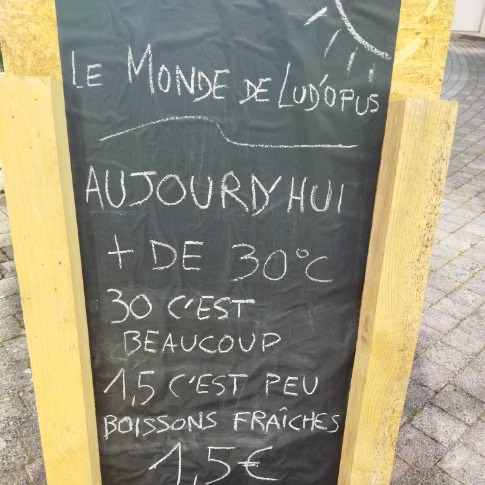 LE MONDE DE LUD'OPUS
AUJOURD'HUI
+ DE 30°C
30 C'EST
BEAUCOUP
1,5 C'EST PEU
BOISSONS FRAÎCHES
1,5€